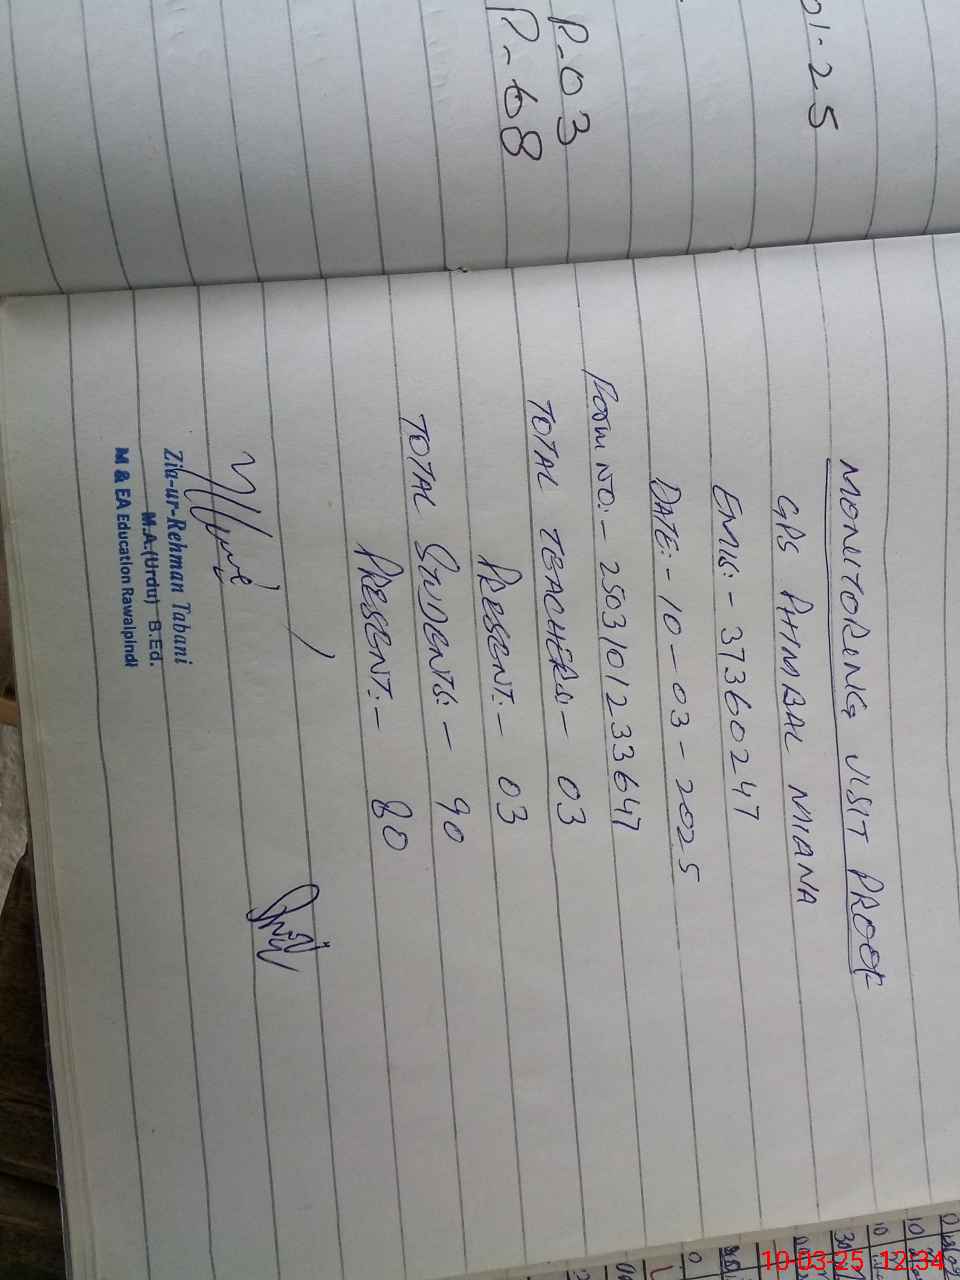 01-25
P-03
P-68
MONITORING VISIT PROOF
GPS PHIMBAL MIANA
EMIS:- 37360247
DATE:- 10-03-2025
Form NO:- 2503101233647
TOTAL TEACHERS:- 03
PRESENT:- 03
TOTAL STUDENTS:- 90
PRESENT:- 80
Zia-ur-Rehman Tabani
M.A.(Urdu) B.Ed.
M & EA Education Rawalpindi
10-03-25 12:34